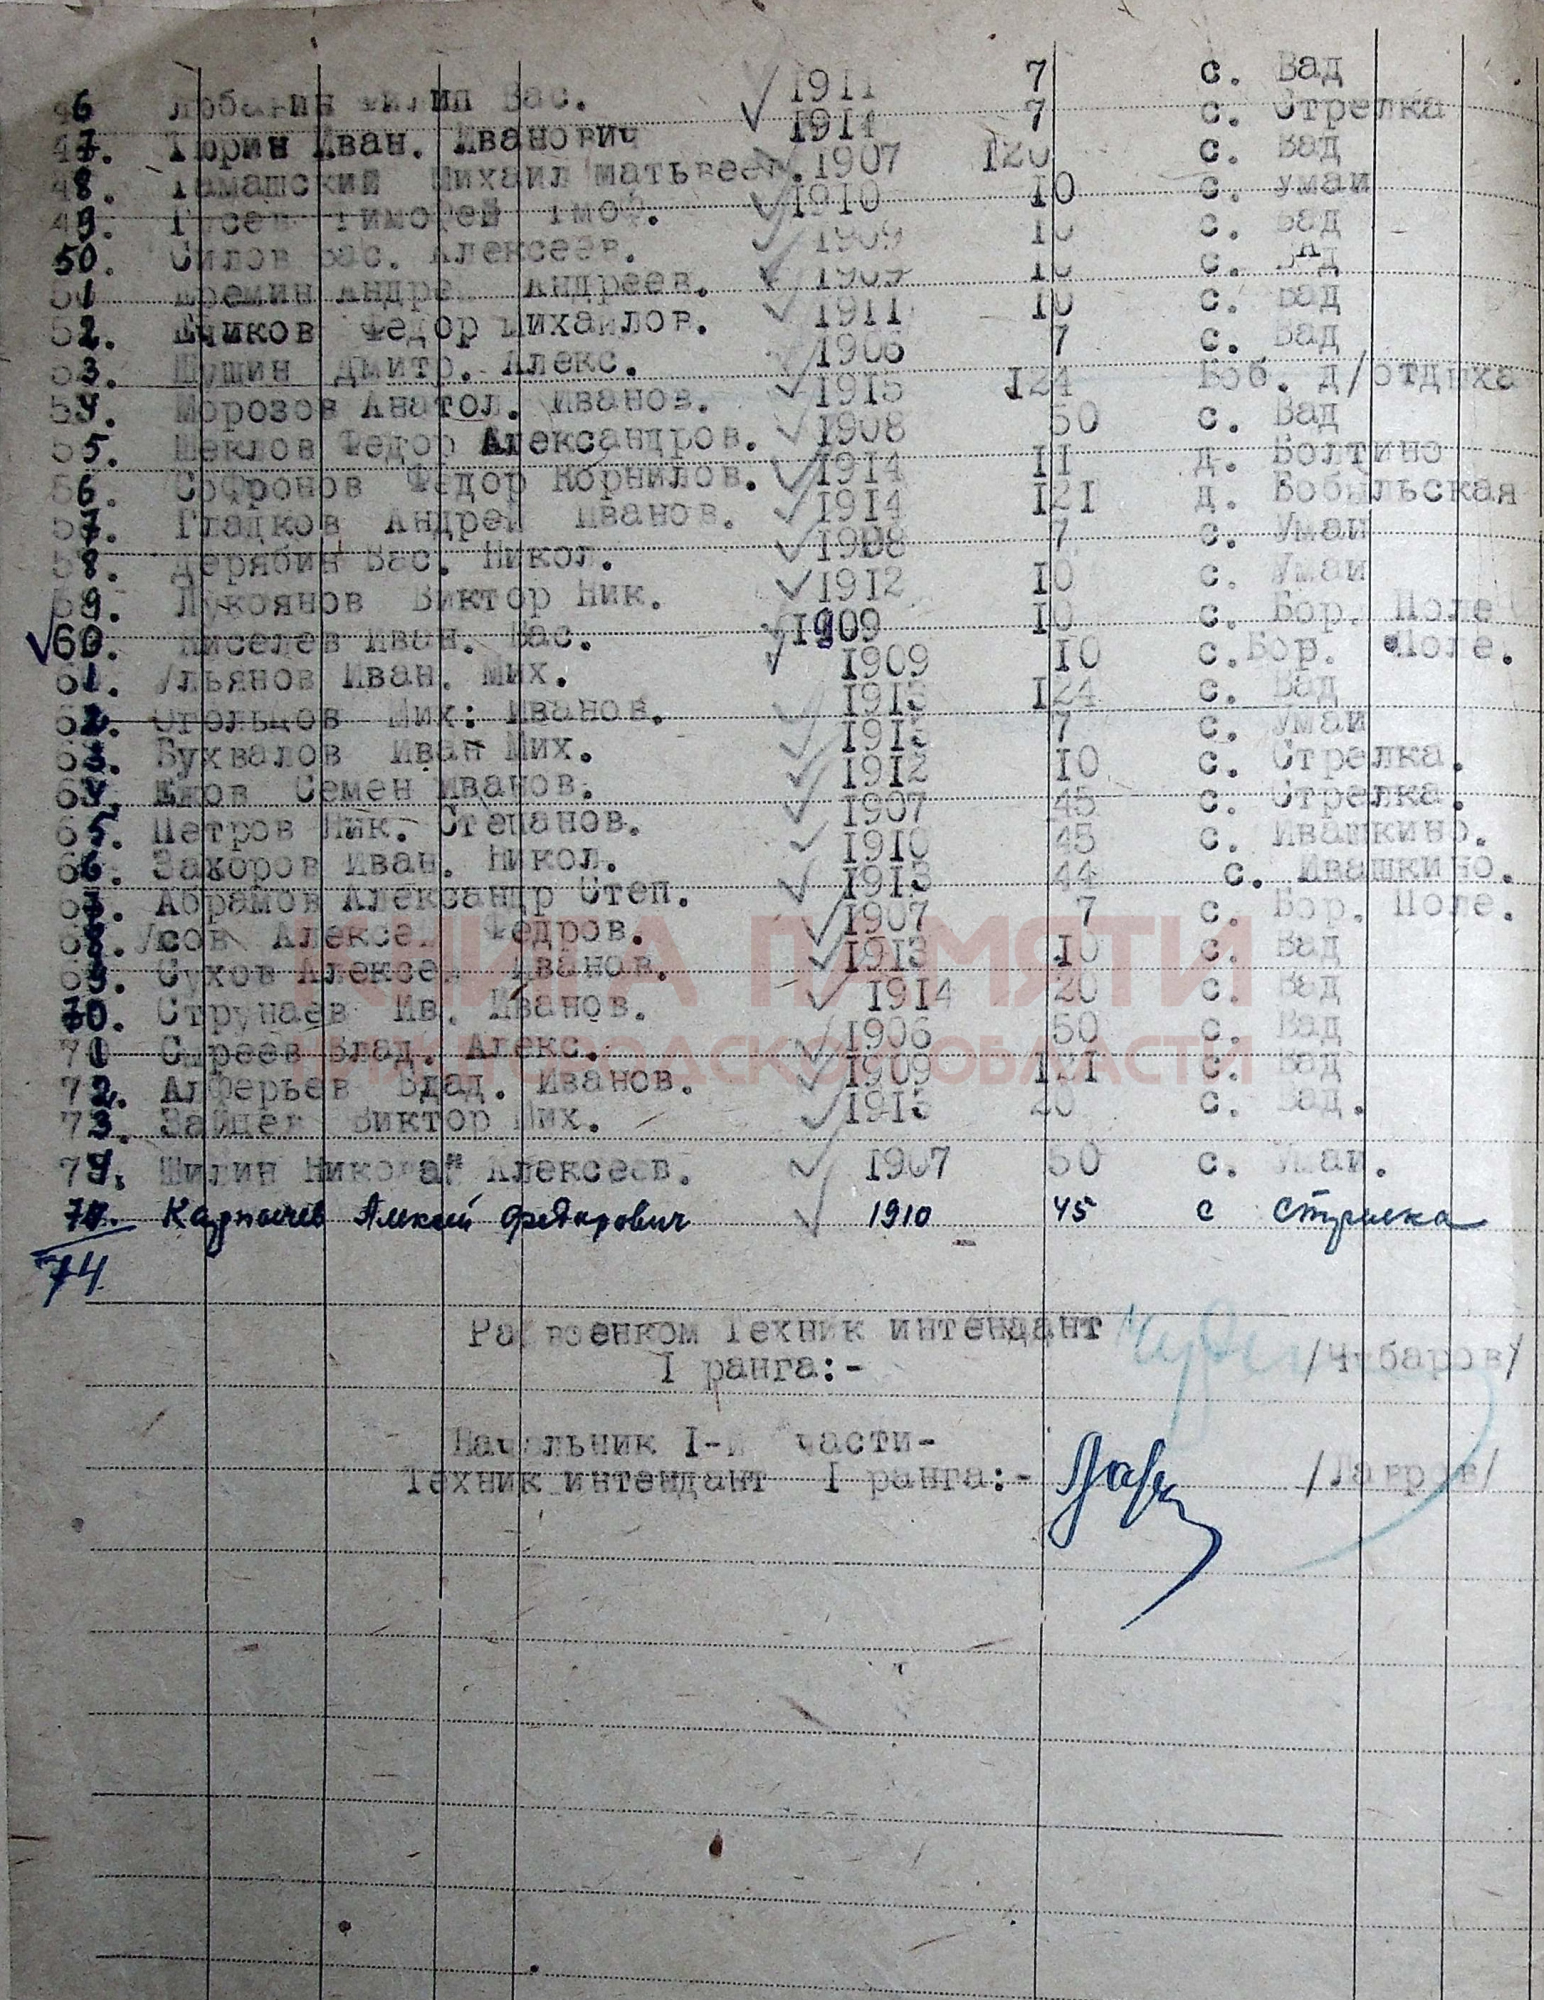 46 Любавин Филип Вас. 1911 7 с. Вад
47. Тюрин Иван. Иванович 1914 7 с. Стрелка
48. Михаил матьвеев. 1907 120 с. Вад
49. Гусев тимофей тмоф. 1910 10 с. умаи
50. Силов Вас. Алексеев. 1909 10 с. Вад
1 Еремин Андре Андреев. 1909 10 с. ВАд
2. Федор Михаилов. 1911 10 с. Вад
3. Шушин дмитр. Алекс. 1906 7 с. Вад
4. Морозов Анатол. Иванов. 1915 124 Боб. д/отдыха
5. Шеклов Федор Александров. 1908 50 с. Вад
6. Софронов Федор Корнилов. 1914 11 д. Болтино
7. Гладков Андрей Иванов. 1914 121 д. Бобыльская
8. дерябин Вас. Никол. 1908 7 с. Умаи
9. Лукоянов Виктор Ник. 1912 10 с. Умаи
60. Киселев Иван. Вас. 1909 10 с. Бор. Поле
61. Ульянов Иван. Мих. 1909 10 с. Бор. Поле.
62. Стольцов Мих: Иванов. 1913 124 с. Вад
63. Бухвалов Иван Мих. 1913 7 с. Умаи
64. Семен Иванов. 1912 10 с. Стрелка.
65. Петров Ник. Степанов. 1907 45 с. Стрелка.
66. Захоров Иван. Никол. 1910 45 с. Ивашкино.
67. Абрамов Александр Степ. 1913 44 с. Ивашкино.
68. Усов Алексе Федров. 1907 7 с. Бор. Поле.
69. Сухов Алексе Иванов. 1913 10 с. Вад
70. Струнаев Ив. Иванов. 1914 20 с. Вад
71 Сыреев Влад. Алекс. 1906 50 с. Вад
72. Алферьев Влад. Иванов. 1909 121 с. Вад
73. Зайцев Виктор Мих. 1913 20 с. Вад.
74. Шилин Николай Алексеев. 1907 50 с. Умаи.
Карпычев Алексей Федорович 1910 45 с Стрелка
74
КНИГА ПАМЯТИ
НИЖЕГОРОДСКОЙ ОБЛАСТИ
Райвоенком Техник интендант
I ранга:- /Чубаров/
Начальник I-й части-
Техник интендант I ранга:- /Лавров/